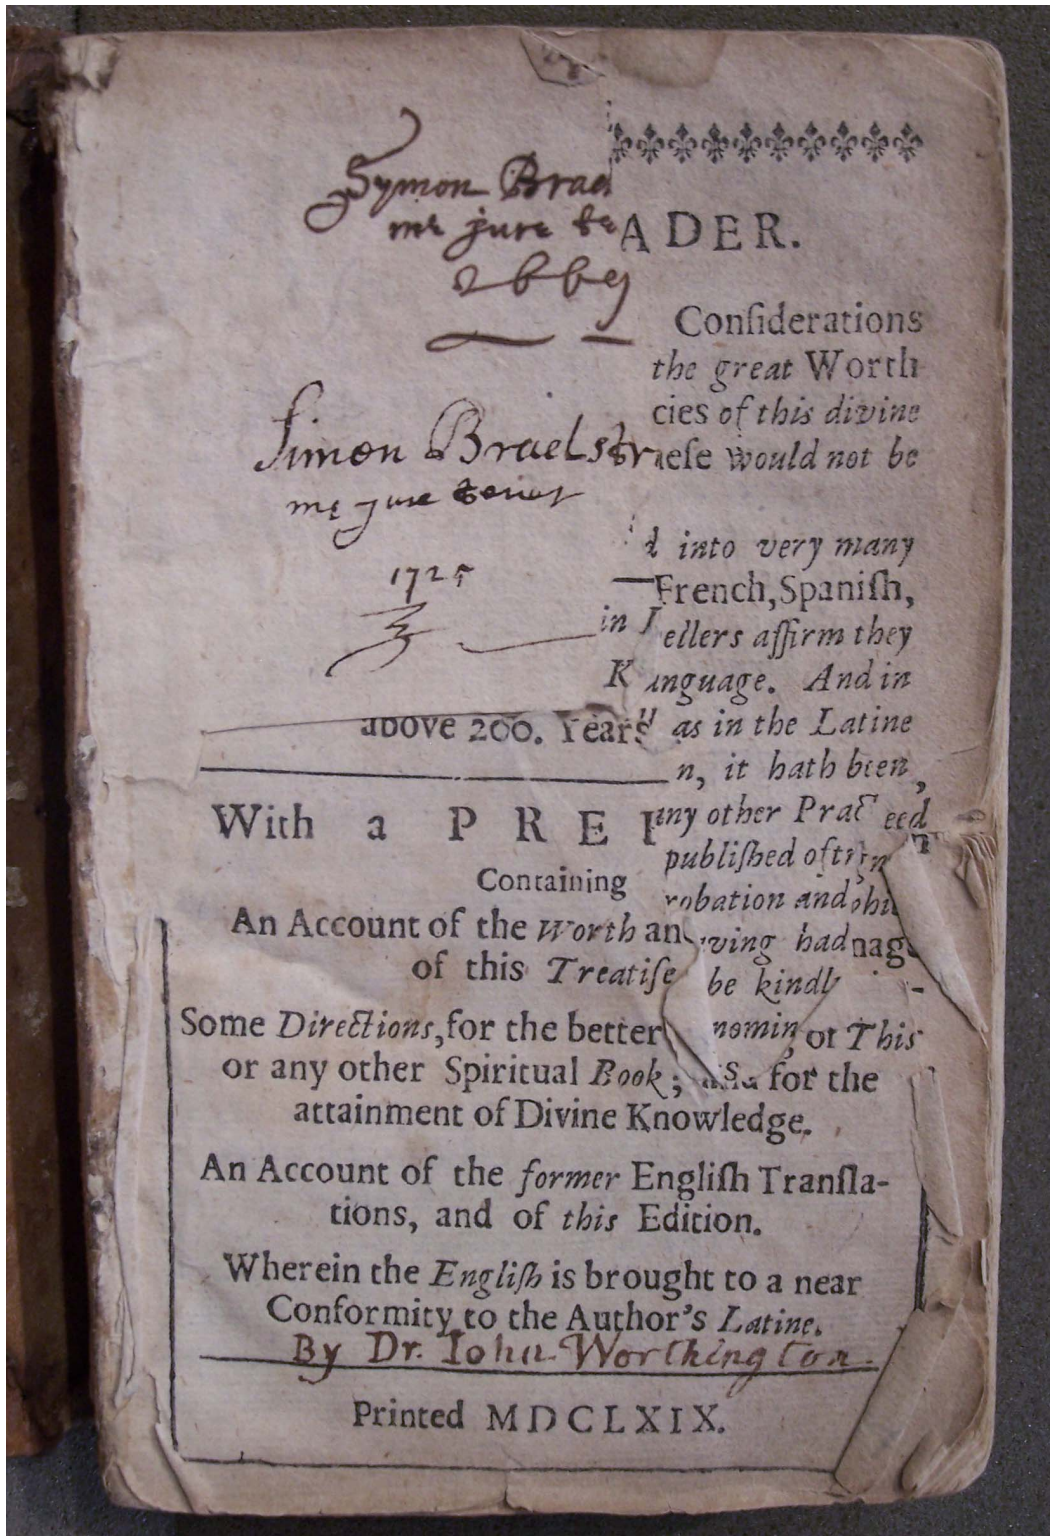 Symon Brae
me jure te
ADER.
1669
Conſiderations
the great Worth
cies of this divine
Simon Braelstr
ieſe would not be
me jure tenet
d into very many
1725
French, Spaniſh,
in
ellers affirm they
K
anguage. And in
above 200. Years
as in the Latine
n, it hath been,
With a PREF
any other Prac
eed
publiſhed oft
Containing
robation and
An Account of the Worth an
ving had
nag
of this Treatiſe
be kindly
Some Directions, for the better
nomin
or This
or any other Spiritual Book; and for the
attainment of Divine Knowledge.
An Account of the former Engliſh Tranſla-
tions, and of this Edition.
Wherein the Engliſh is brought to a near
Conformity to the Author's Latine.
By Dr. Iohn Worthington.
Printed MDCLXIX.